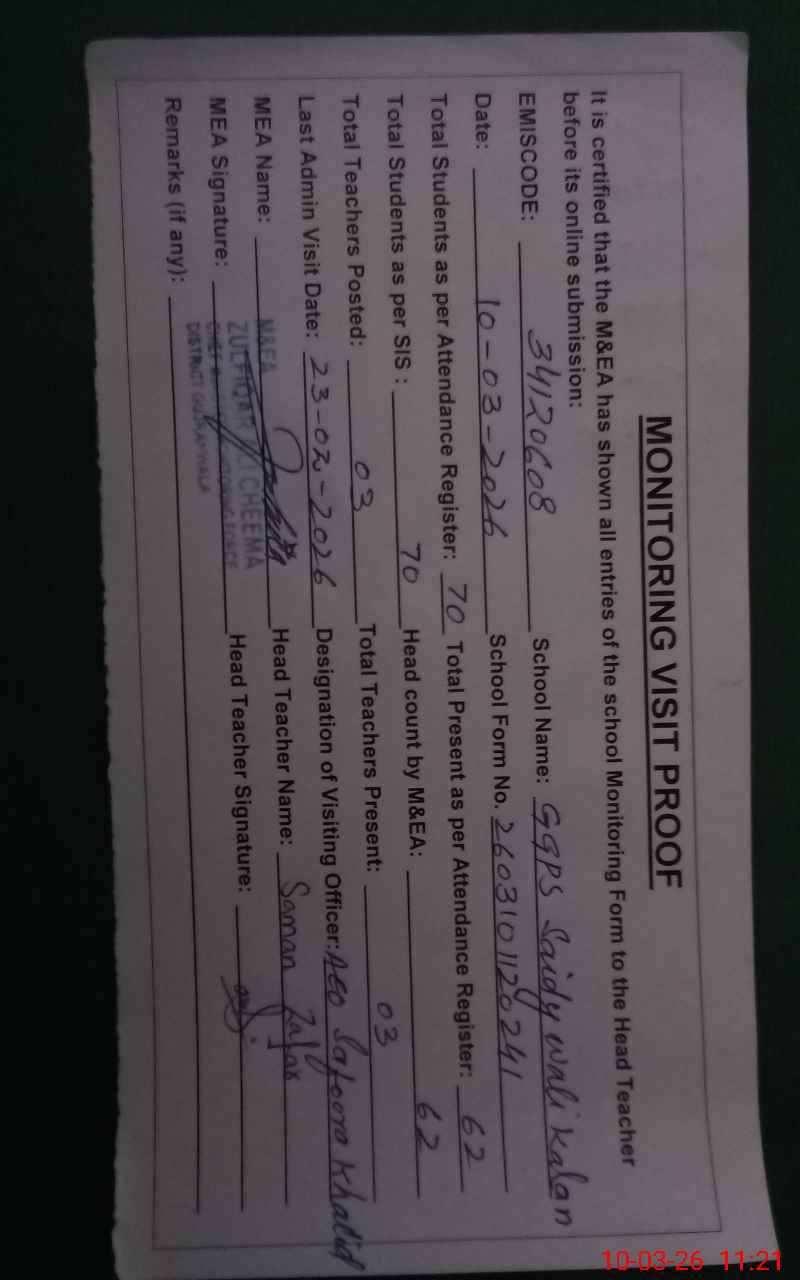 MONITORING VISIT PROOF
It is certified that the M&EA has shown all entries of the school Monitoring Form to the Head Teacher
before its online submission:
EMISCODE: 34120608 School Name: GGPS Saidy wali Kalan
Date: 10-03-2026 School Form No. 2603101120241
Total Students as per Attendance Register: 70 Total Present as per Attendance Register: 62
Total Students as per SIS : 70 Head count by M&EA: 62
Total Teachers Posted: 03 Total Teachers Present: 03
Last Admin Visit Date: 23-02-2026 Designation of Visiting Officer: AEO Safoora Khalid
MEA Name: Head Teacher Name: Saman Zafar
M&EA
ZULFIQAR CHEEMA
MEA Signature: Head Teacher Signature:
CHIEF MONITORING FORCE
DISTRICT GUJRANWALA
Remarks (if any):
10-03-26 11:21